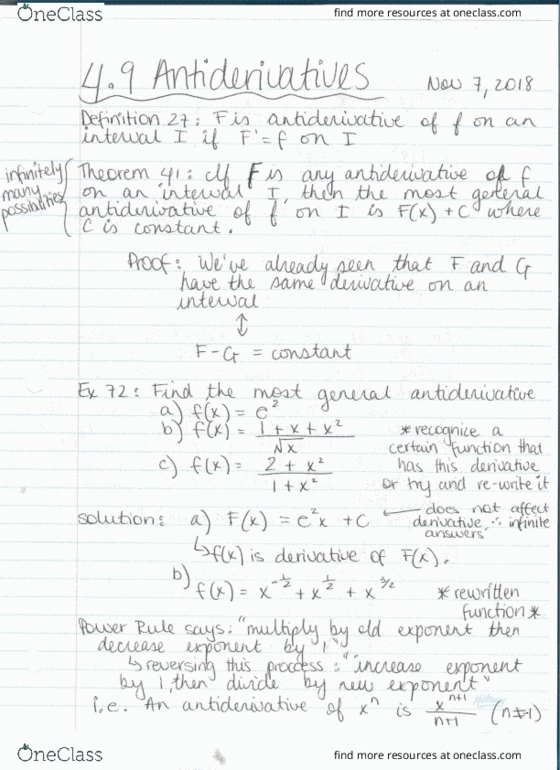 OneClass
find more resources at oneclass.com
4.9 Antiderivatives
Nov 7, 2018
Definition 27: F is antiderivative of f on an
interval I if F' = f on I
infinitely
many
possibilities
Theorem 41: If F is any antiderivative of f
on an interval I, then the most general
antiderivative of f on I is F(x) + C where
C is constant.
Proof: We've already seen that F and G
have the same derivative on an
interval
↕
F - G = constant
Ex 72: Find the most general antiderivative
a) f(x) = e²
b) f(x) = 1 + x + x² / √x
c) f(x) = 2 + x² / 1 + x²
* recognize a
certain function that
has this derivative
or try and re-write it
solution: a) F(x) = e²x + C
← does not affect
derivative ∴ infinite
answers
↳ f(x) is derivative of F(x).
b) f(x) = x^-1/2 + x^1/2 + x^3/2
* rewritten
function *
Power Rule says: "multiply by old exponent then
decrease exponent by 1"
↳ reversing this process: "increase exponent
by 1, then divide by new exponent"
i.e. An antiderivative of xⁿ is x^n+1 / n+1 (n≠-1)
OneClass
find more resources at oneclass.com